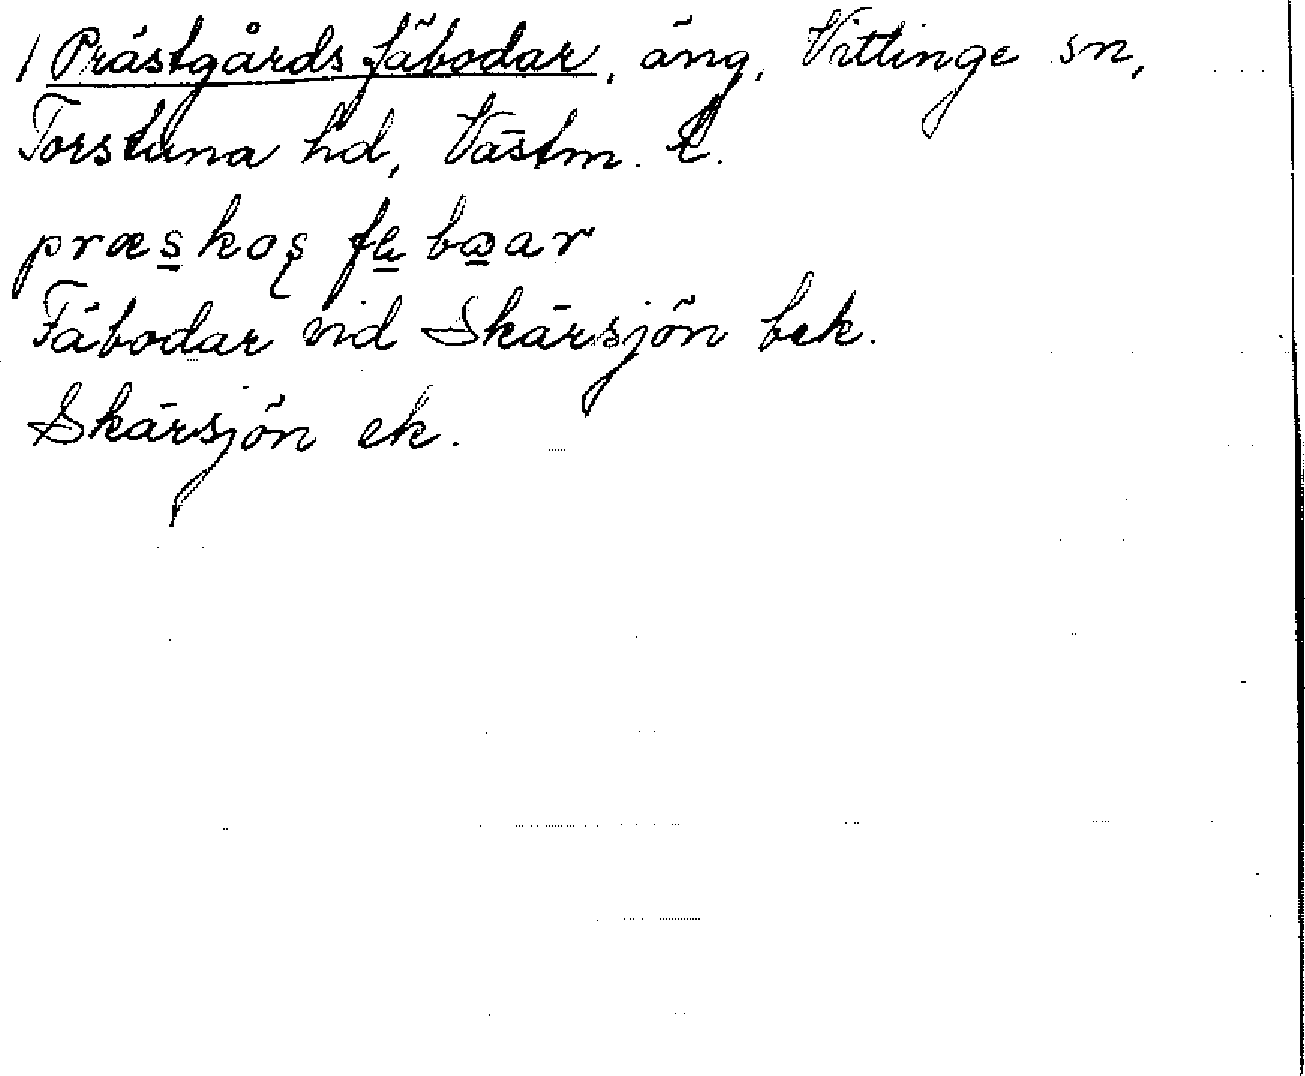 / Prästgårds fäbodar, äng, Vittinge sn,
Torstuna hd, Västm. l.
præskoʂ fäbɷar
Fäbodar vid Skärsjön bek.
Skärsjön ek.